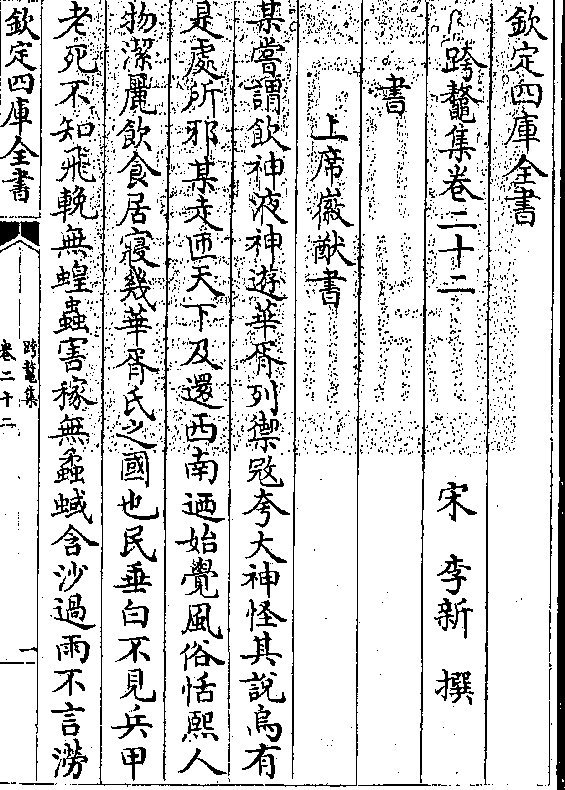 欽定四庫全書
跨鼇集卷二十二
宋 李新 撰
書
上席徽猷書
某嘗謂飲神液神遊華胥列禦寇夸大神怪其說烏有
是處所邪某走匝天下及還西南迺始覺風俗恬熙人
物潔麗飲食居寢幾華胥氏之國也民垂白不見兵甲
老死不知飛輓無蝗蟲害稼無蟊蜮含沙過雨不言澇
欽定四庫全書
跨鼇集
卷二十二
一